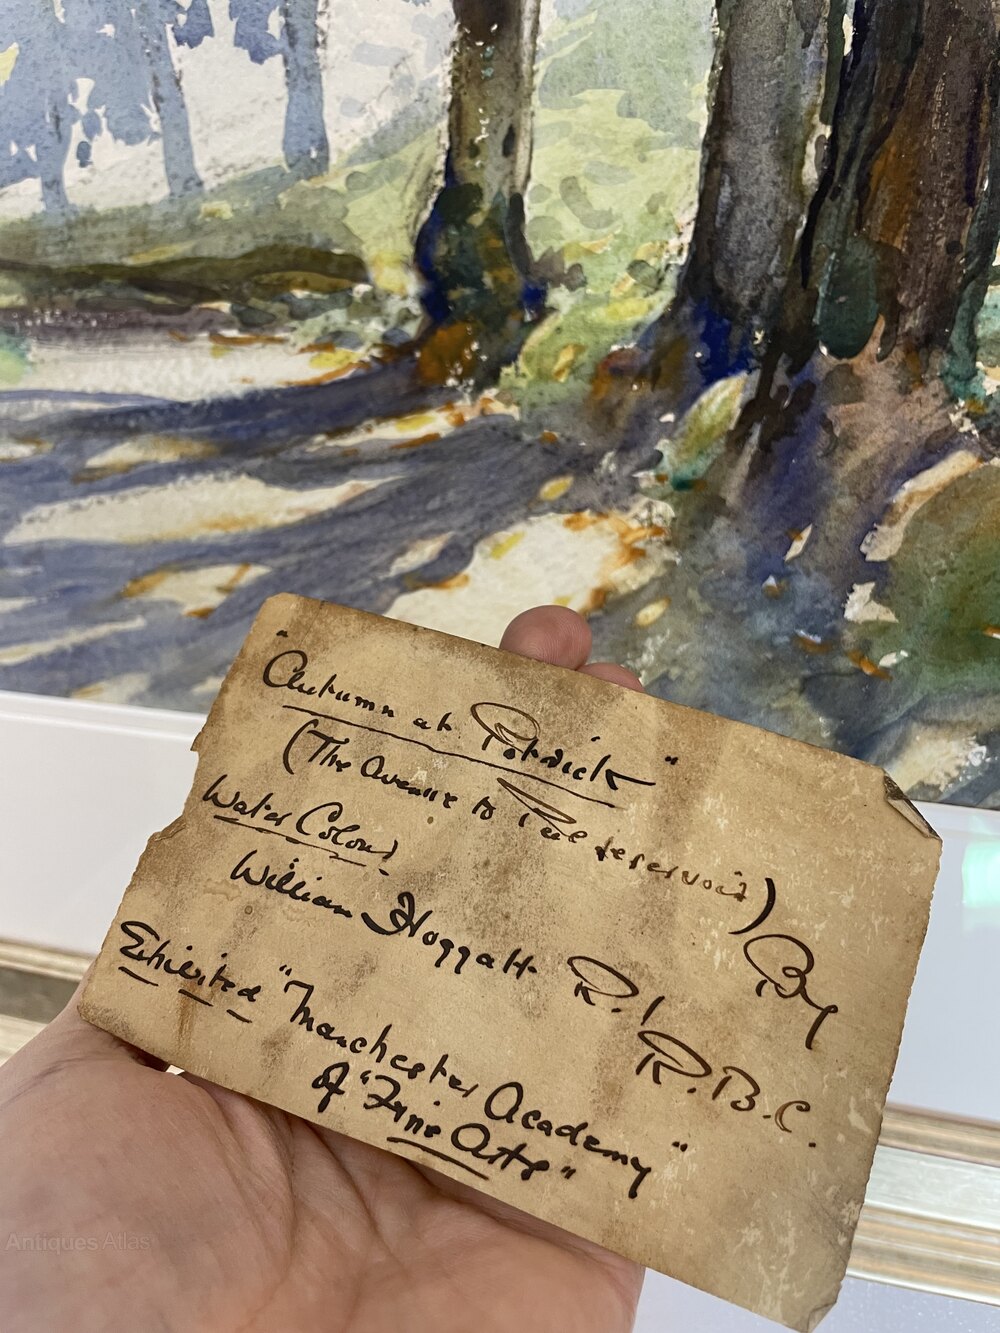 "Autumn at Poldrick"
(The Avenue to Peel reservoir)
Water Colour By
William Hoggatt R.I. R.B.C.
Exhibited "Manchester Academy"
of "Fine Arts"
Antiques Atlas